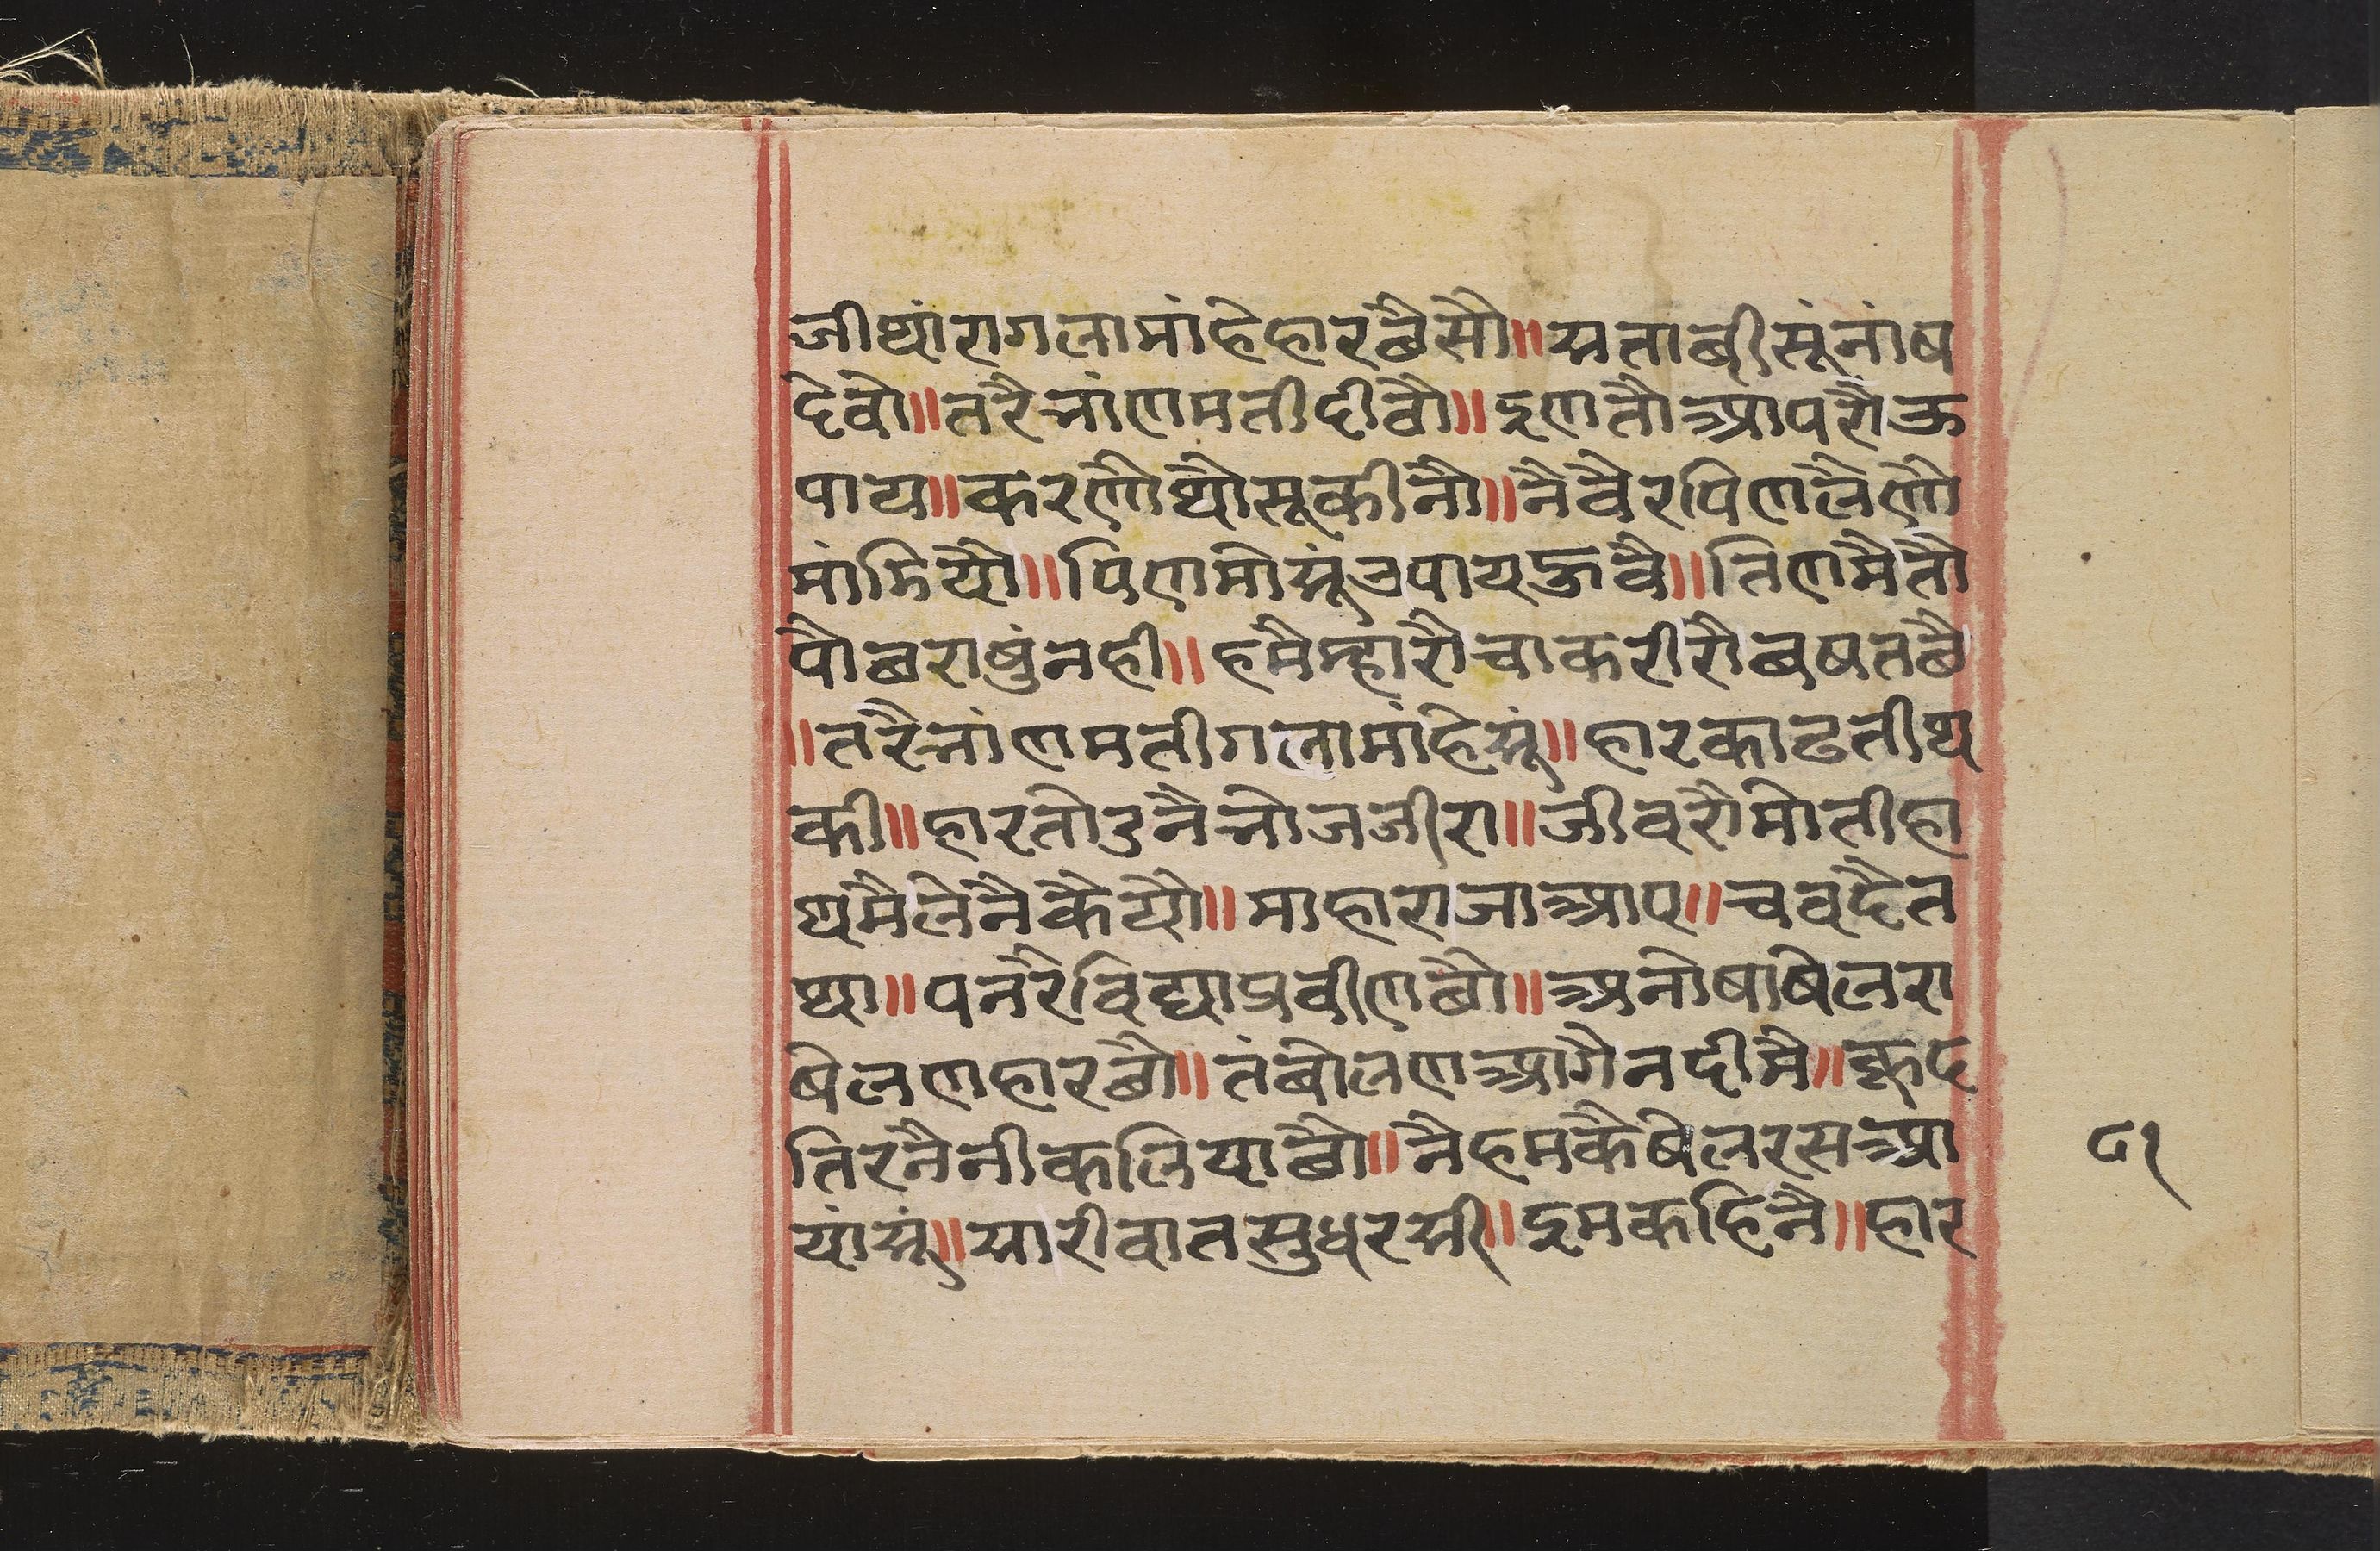 जीथांरागलामांहेहारछैसौ॥सताबीसूंनांष
देवो॥तरैनांणमतीदीवौ॥इणतौआपरौऊ
पाय॥करणौथौसूकीनौ॥नैवैरपिणलैणौ
मांमियौ॥पिणमोसूंउपायऊवै॥तिणमैतौ
पौबराषुंनही॥हमैम्हारौचाकरीरौबषतछै
॥तरैनांणमतीगलामांहेसूं॥हारकाढतीथ
की॥हारतोडनैनोजजीरा॥जीवरौमोतीहा
थमैलेनैकैयौ॥माहाराजाआप॥चवदैत
था॥पनरैविद्याप्रवीणछौ॥अनोषाषेलरा
षेलणहारछौ॥तंबोलणआगैनदीमै॥कूद
तिरनैनीकलियाछौ॥नैहमकैषेलरसआ
यांसूं॥सारीवातसुधरसी॥इमकहिनै॥हार
८१